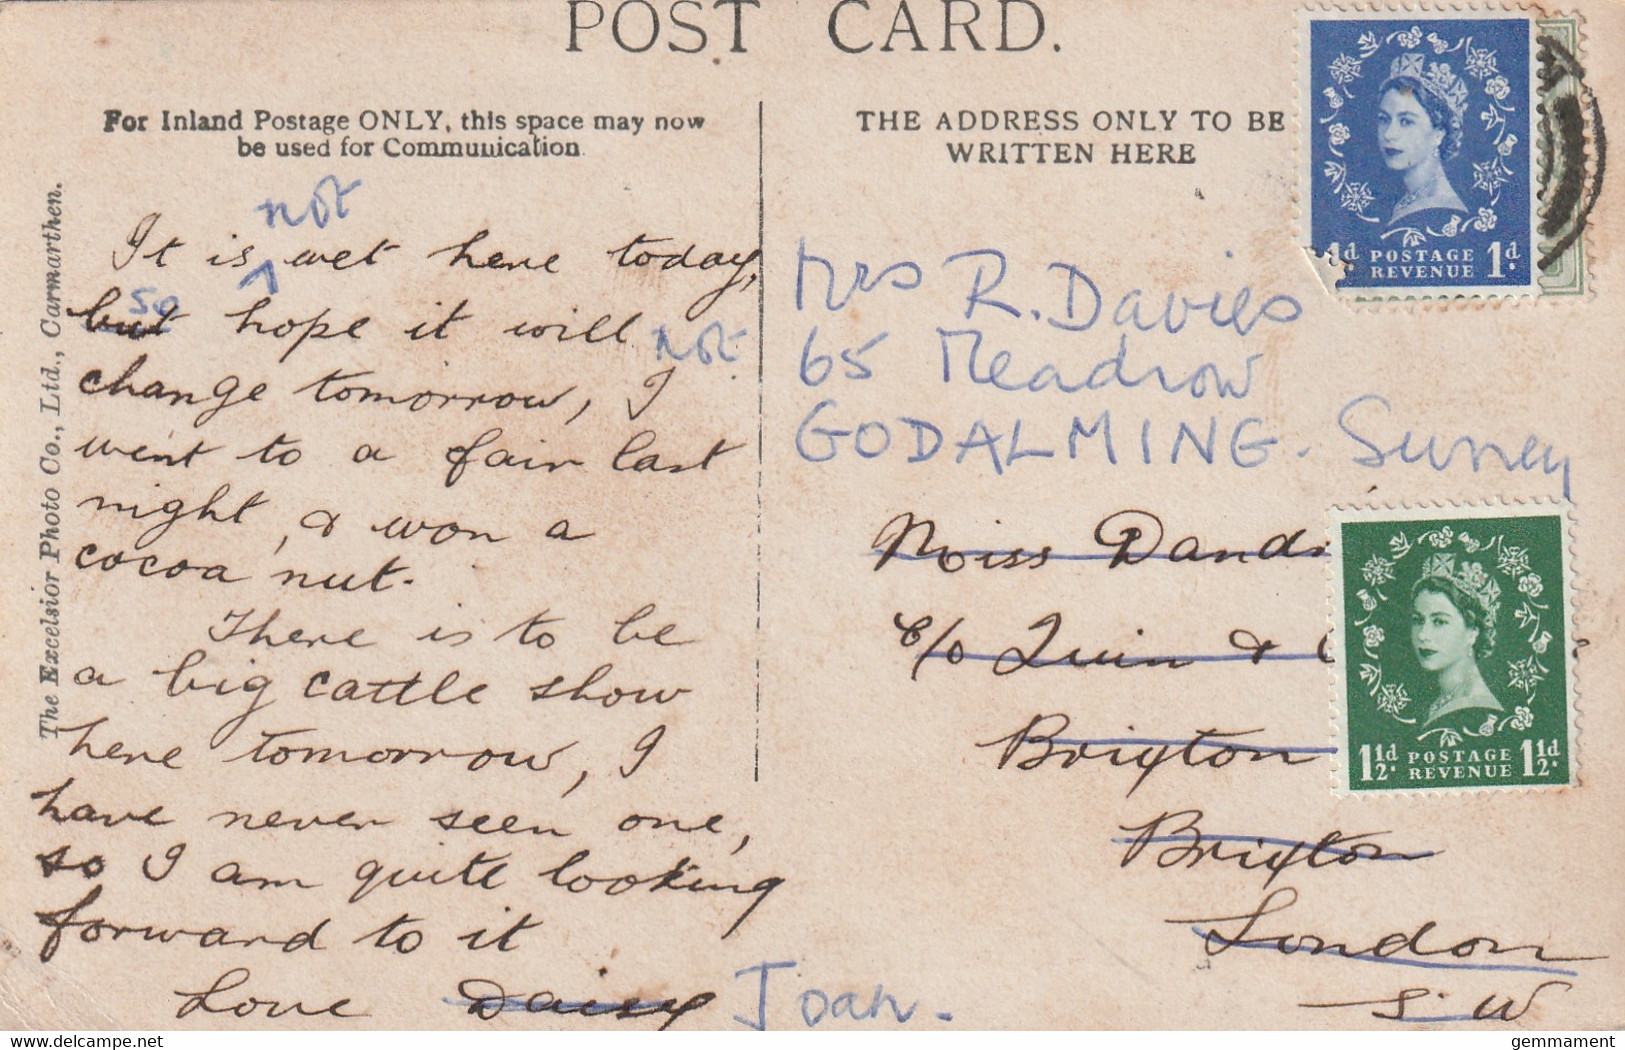 POST CARD.
For Inland Postage ONLY, this space may now
be used for Communication.
THE ADDRESS ONLY TO BE
WRITTEN HERE
The Excelsior Photo Co., Ltd., Carmarthen.
not
It is ^ wet here today,
but so hope it will not
change tomorrow, I
went to a fair last
night, & won a
cocoa nut.
There is to be
a big cattle show
here tomorrow, I
have never seen one,
so I am quite looking
forward to it
Love Daisy Joan.
Mrs R. Davies
65 Meadrow
GODALMING. Surrey
Miss Dand
c/o Quin &
Brixton
Brixton
London
S.W
1d POSTAGE 1d.
REVENUE
1½d. POSTAGE 1½d.
REVENUE
gemmament